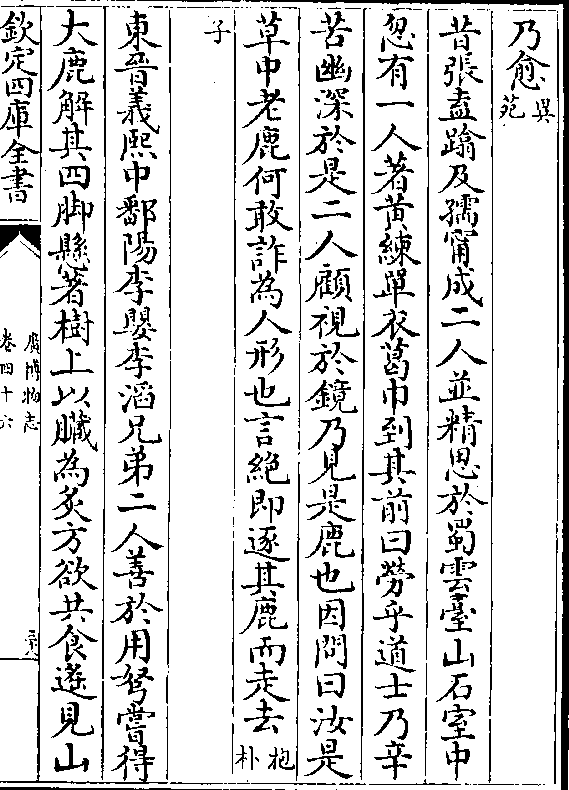 乃愈異苑
昔張盍蹹及孺甯成二人並精思於蜀雲臺山石室中
忽有一人著黃練單衣葛巾到其前曰勞乎道士乃辛
苦幽深於是二人顧視於鏡乃見是鹿也因問曰汝是
草中老鹿何敢詐為人形也言絶即逐其鹿而走去抱朴
子
東晉義熙中鄱陽李嬰李滔兄弟二人善於用弩嘗得
大鹿解其四脚懸著樹上以臟為炙方欲共食遙見山
欽定四庫全書
廣博物志
卷四十六